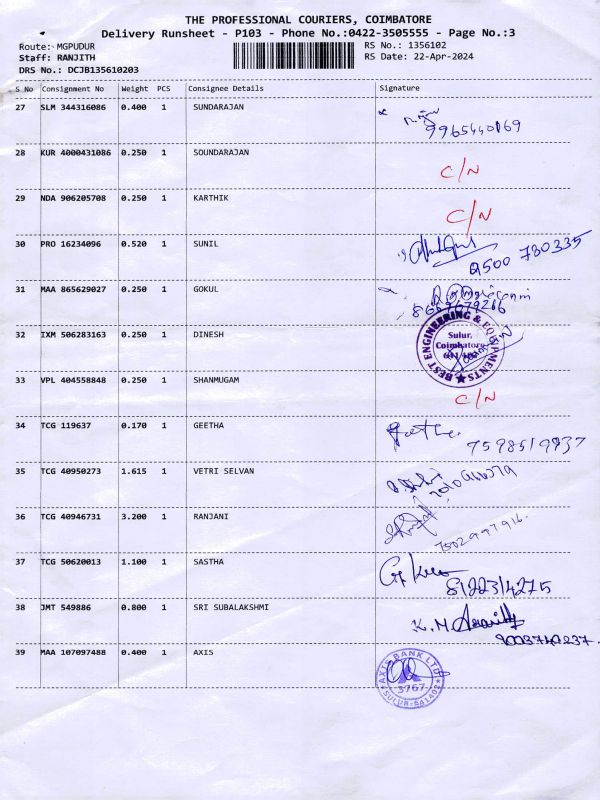 THE PROFESSIONAL COURIERS, COIMBATORE
Delivery Runsheet - P103 - Phone No.:0422-3505555 - Page No.:3
Route: MGPUDUR RS No.: 1356102
Staff: RANJITH RS Date: 22-Apr-2024
DRS No.: DCJB135610203
S No Consignment No Weight PCS Consignee Details Signature
27 SLM 344316086 0.400 1 SUNDARAJAN
9965440169
28 KUR 4000431086 0.250 1 SOUNDARAJAN
C/N
29 NDA 906205708 0.250 1 KARTHIK
C/N
30 PRO 16234096 0.520 1 SUNIL
9500 730335
31 MAA 865629027 0.250 1 GOKUL
8667679266
32 IXM 506283163 0.250 1 DINESH
BEST ENGINEERING & EQUIPMENTS
Sulur,
Coimbatore
33 VPL 404558848 0.250 1 SHANMUGAM
C/N
34 TCG 119637 0.170 1 GEETHA
Geetha
7598519937
35 TCG 40950273 1.615 1 VETRI SELVAN
36 TCG 40946731 3.200 1 RANJANI
7502997916.
37 TCG 50620013 1.100 1 SASTHA
8122314275
38 JMT 549886 0.800 1 SRI SUBALAKSHMI
K.M
9003740237.
39 MAA 107097488 0.400 1 AXIS
AXIS BANK LTD
3767
SULUR-641402